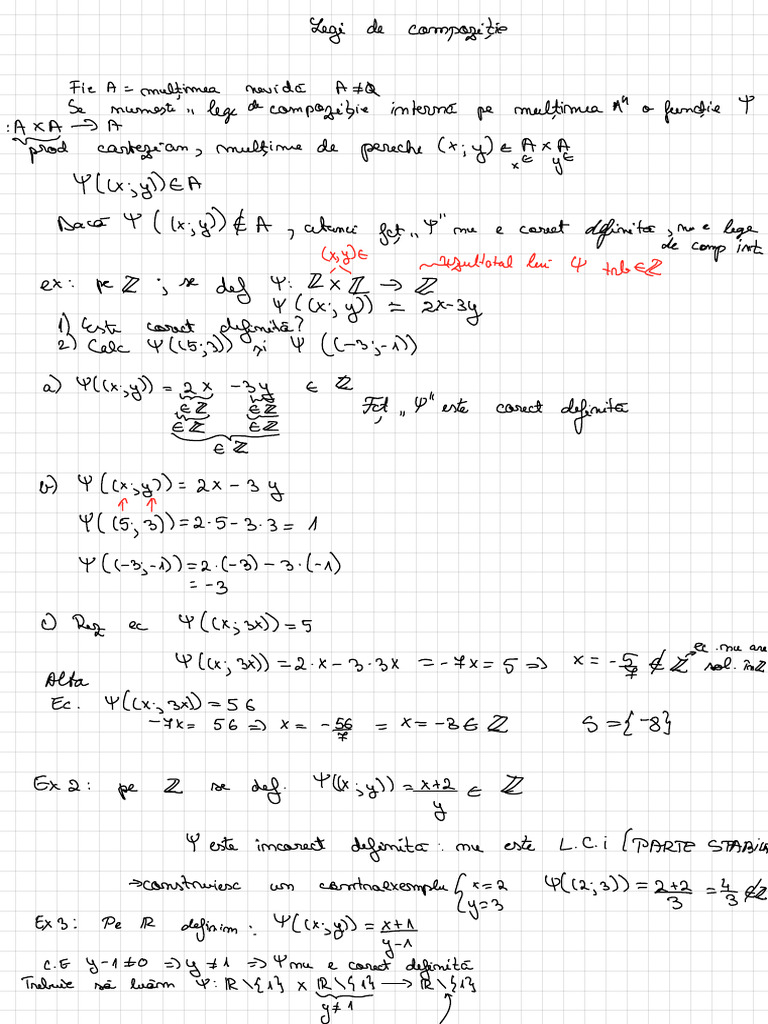 Legi de compoziție
Fie A = mulțimea nevidă A≠Ø
Se numește „lege de compoziție internă pe mulțimea A" o funcție Ψ
: A × A → A
prod cartezian, mulțime de pereche (x; y) ∈ A × A
x∈ y∈
Ψ((x; y)) ∈ A
Dacă Ψ((x; y)) ∉ A, atunci fct „Ψ" nu e corect definită, nu e lege
de comp int.
(x,y)∈
rezultatul lui Ψ treb ∈ Z
ex: pe Z ; se def Ψ: Z × Z → Z
Ψ((x; y)) = 2x-3y
1) Este corect definită?
2) Calc Ψ((5;3)) și Ψ((-3;-1))
a) Ψ((x;y)) = 2x -3y ∈ Z
∈Z ∈Z
∈Z ∈Z
∈ Z
Fct „Ψ" este corect definită
b) Ψ((x;y)) = 2x - 3y
Ψ((5; 3)) = 2·5 - 3·3 = 1
Ψ((-3;-1)) = 2·(-3) - 3·(-1)
= -3
c) Rez ec Ψ((x; 3x)) = 5
Ψ((x; 3x)) = 2·x - 3·3x = -7x = 5 ⇒ x = -5/7 ∉ Z → ec. nu are
sol. în Z
Alta
Ec. Ψ((x; 3x)) = 56
-7x = 56 ⇒ x = -56/7 = x = -8 ∈ Z S = {-8}
Ex 2: pe Z se def. Ψ((x;y)) = x+2/y ∈ Z
Ψ este incorect definită: nu este L.C.i (PARTE STABIL
→construiesc un contraexemplu { x=2 y=3 Ψ((2;3)) = 2+2/3 = 4/3 ∉ Z
Ex 3: Pe R definim: Ψ((x;y)) = x+1/y-1
C.E y-1≠0 ⇒ y≠1 ⇒ Ψ nu e corect definită
Trebuie să luăm Ψ: R\{1} × R\{1} → R\{1}
y≠1